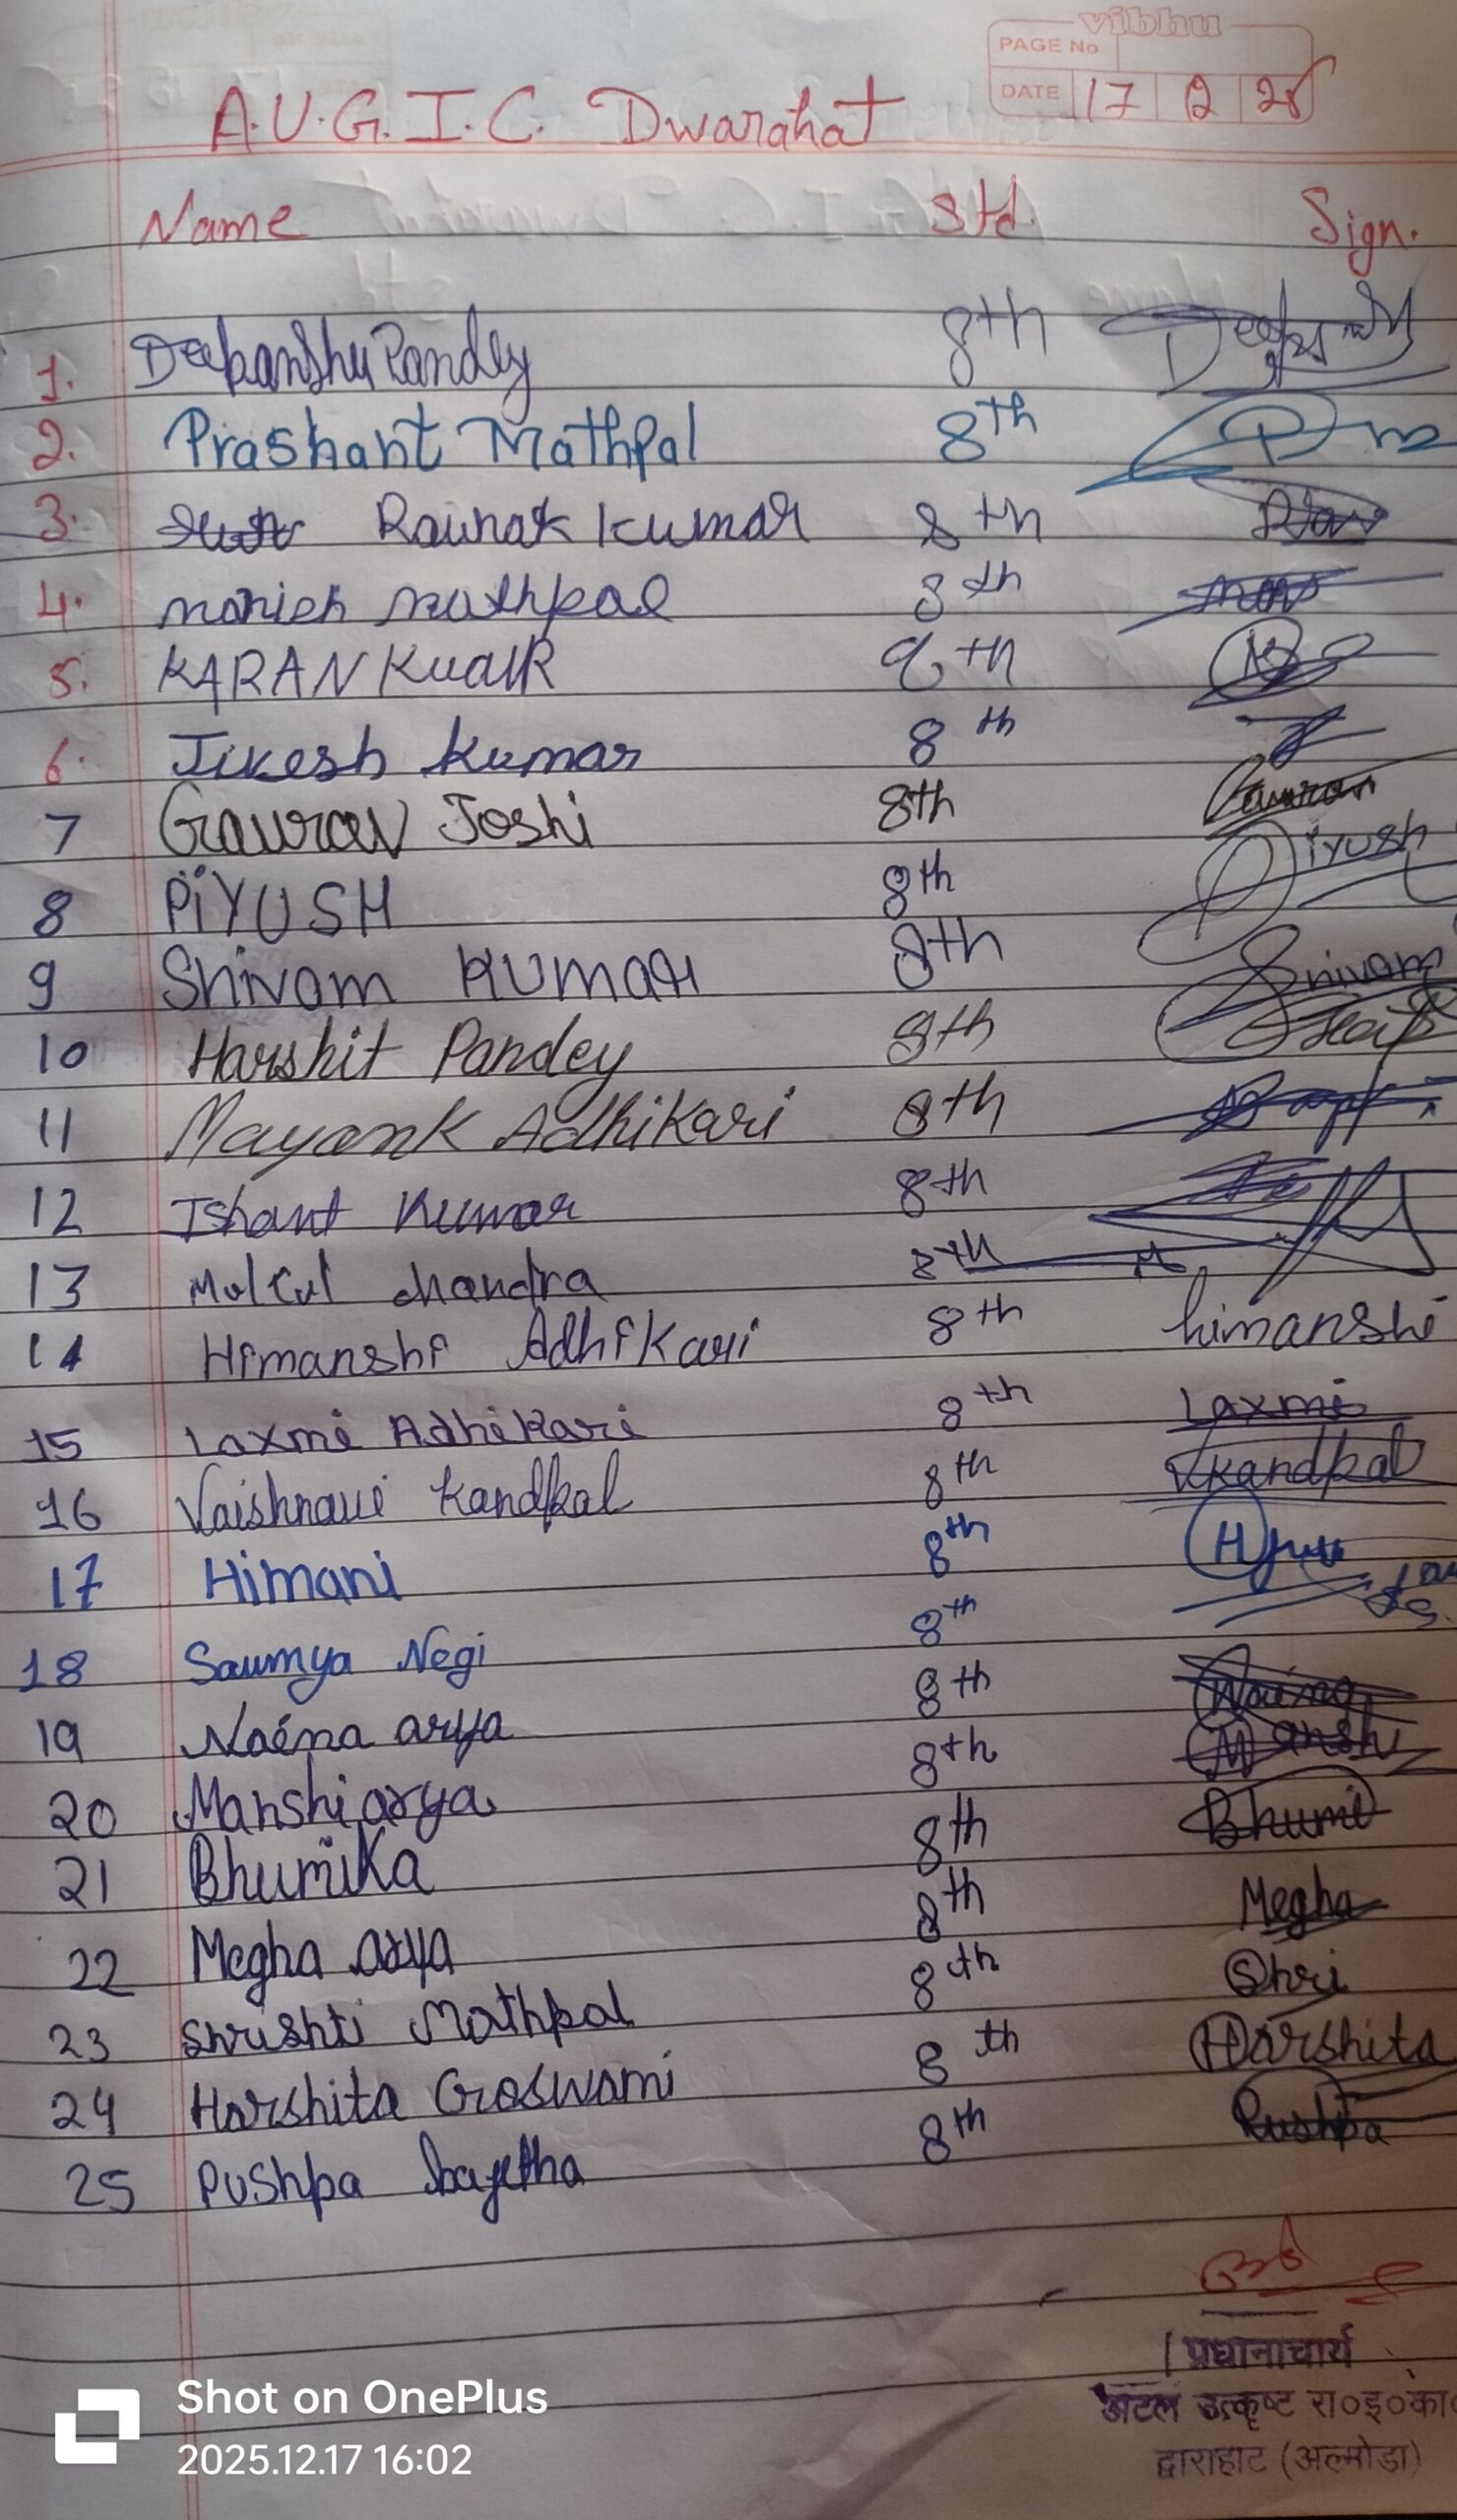 vibhu
PAGE No
DATE 17
A.U.G.I.C. Dwarahat
Name Std. Sign.
1. Deepanshu Pandey 8th
2. Prashant Mathpal 8th
3. Raunak Kumar 8th
4. manish mathpal 8th
5. KARAN 8th
6. Jikesh Kumar 8th
7 Gaurav Joshi 8th Gaurav
8 PiYUSH 8th Piyush
9 Shivam Kumar 8th Shivam
10 Harshit Pandey 8th
11 Mayank Adhikari 8th
12 Ishant Kumar 8th
13 chandra 8th
14 Himanshi Adhikari 8th himanshi
15 Laxmi Adhikari 8th Laxmi
16 Vaishnavi Kandpal 8th VKandpal
17 Himani 8th
18 Saumya Negi 8th
19 Naina arya 8th Naina
20 Manshi arya 8th Manshi
21 Bhumika 8th Bhumi
22 Megha arya 8th Megha
23 Shrishti Mathpal 8th Shri
24 Harshita Goswami 8th Harshita
25 Pushpa 8th Pushpa
प्रधानाचार्य
अटल उत्कृष्ट रा०इ०का०
द्वाराहाट (अल्मोड़ा)
Shot on OnePlus
2025.12.17 16:02